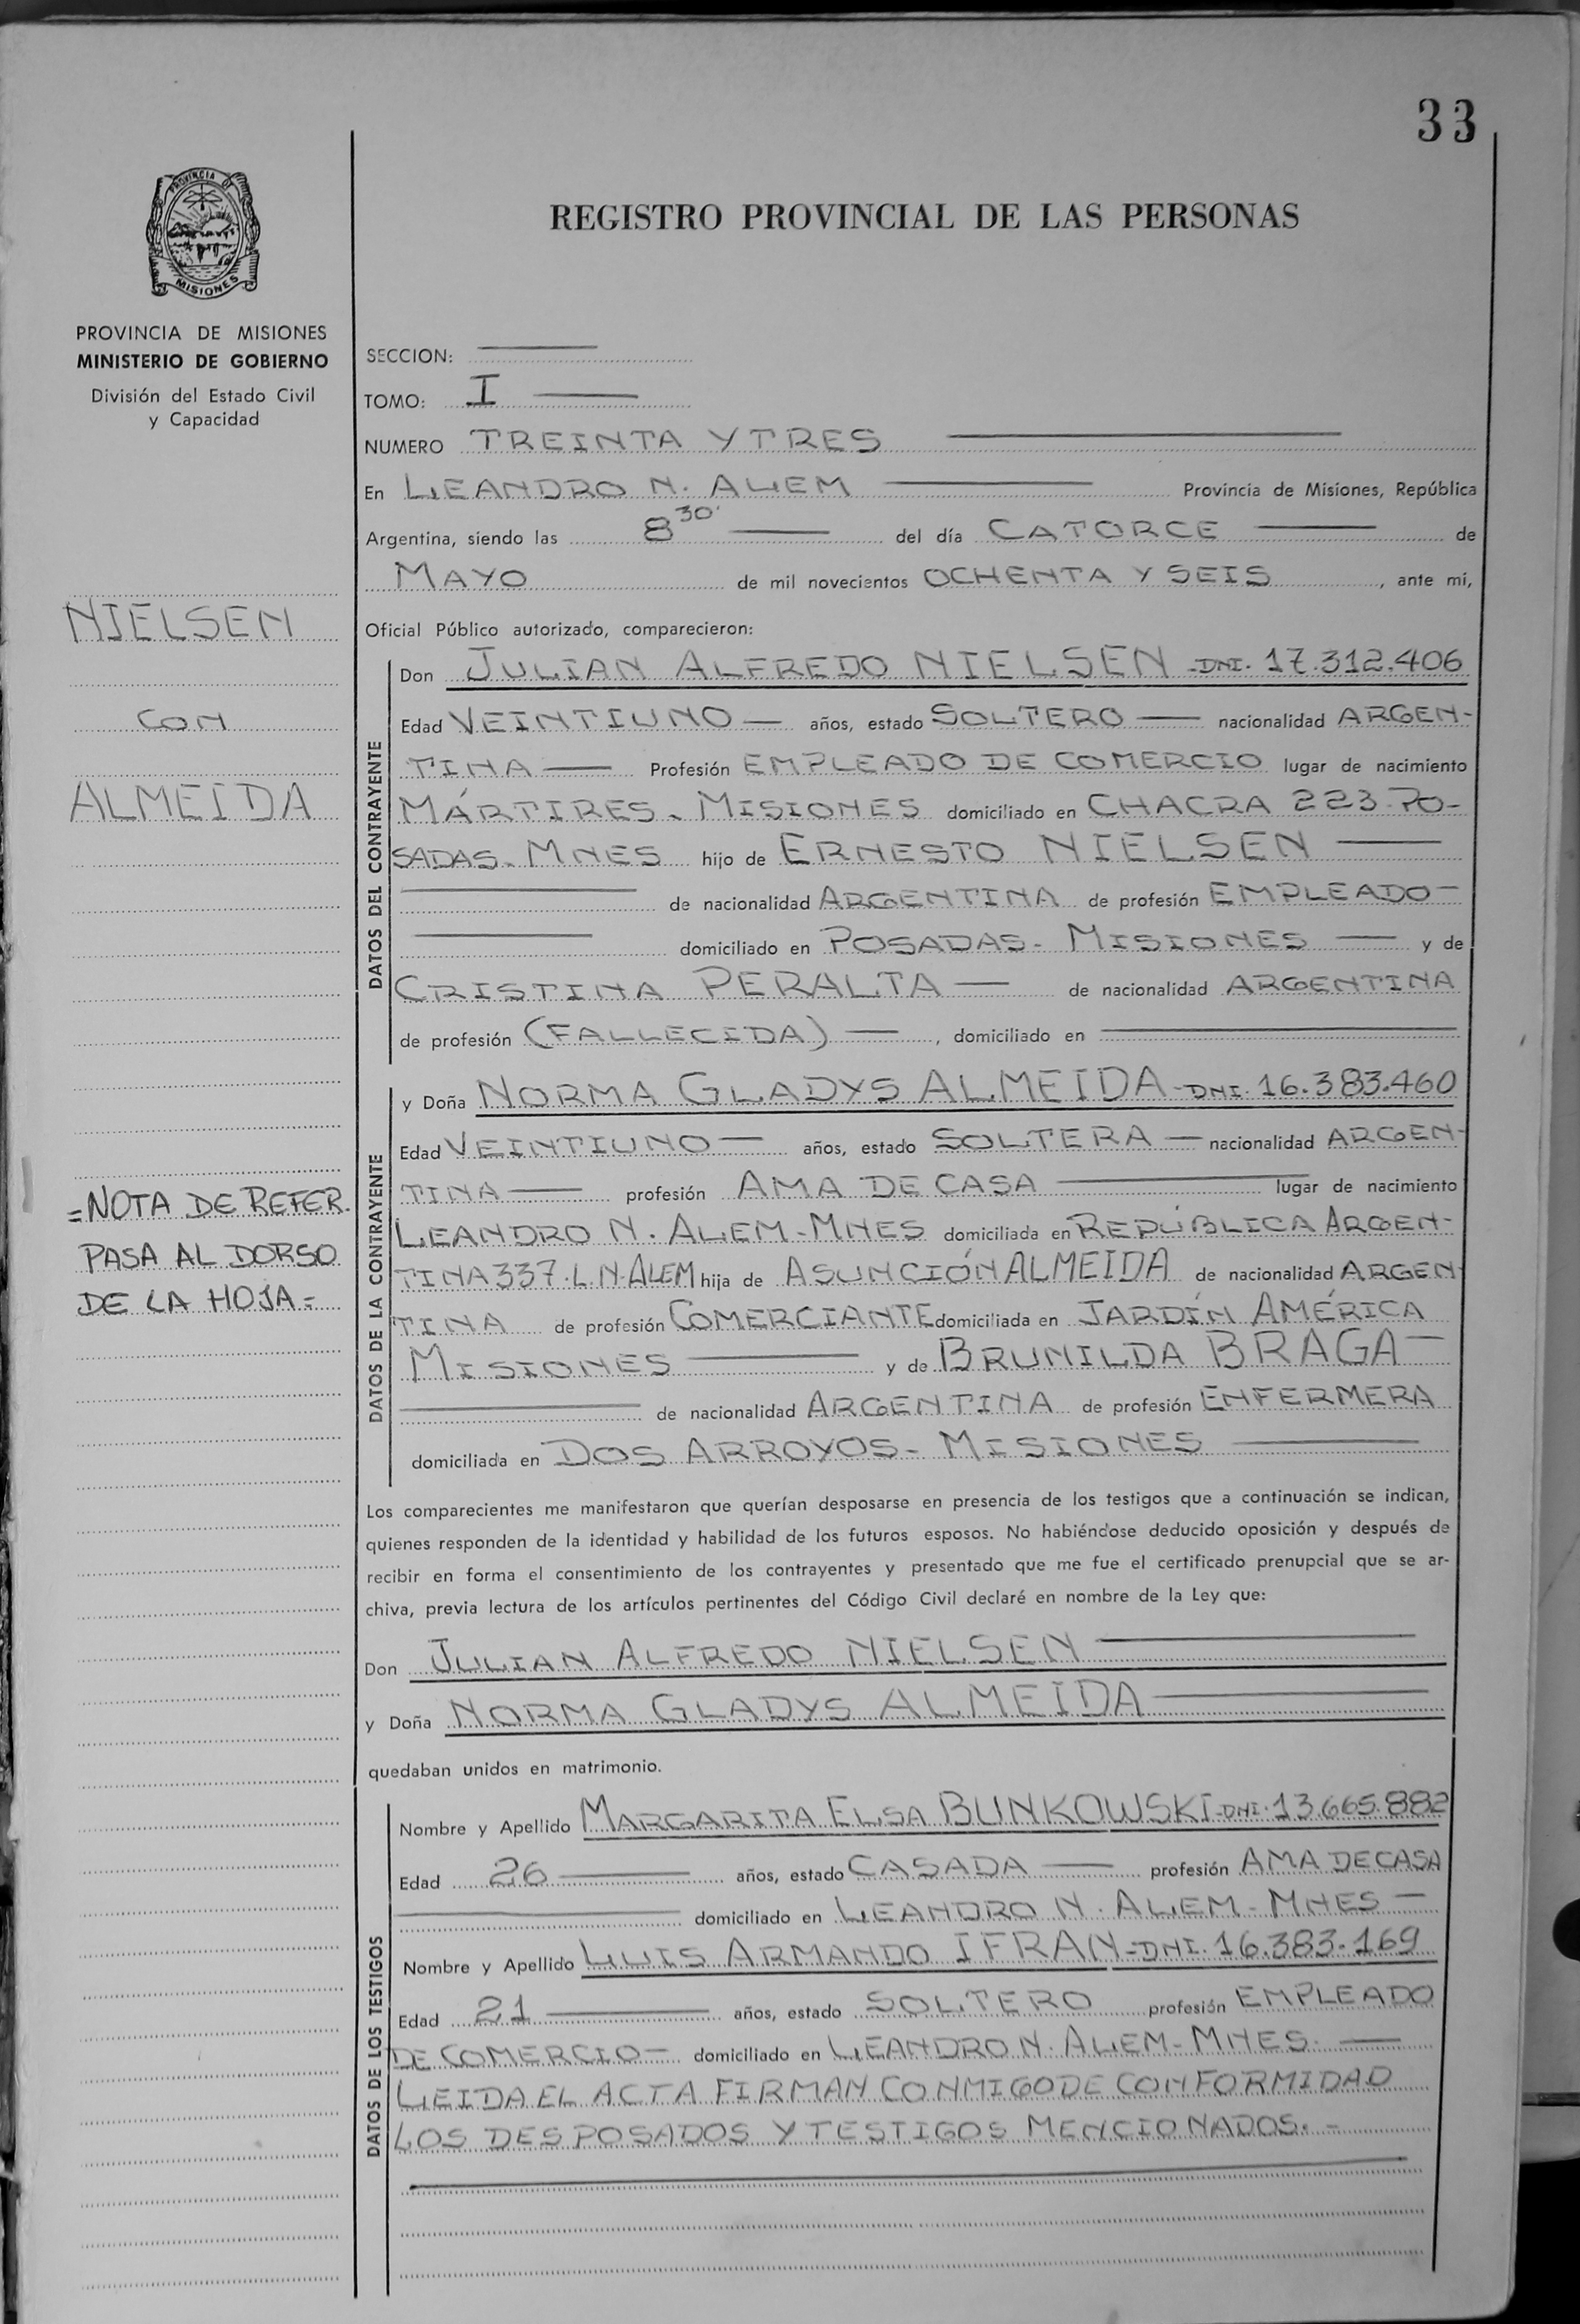 33
PROVINCIA DE
MISIONES
REGISTRO PROVINCIAL DE LAS PERSONAS
PROVINCIA DE MISIONES
MINISTERIO DE GOBIERNO
División del Estado Civil
y Capacidad
SECCION:
TOMO: I
NUMERO TREINTA Y TRES
En LEANDRO N. ALEM Provincia de Misiones, República
Argentina, siendo las 8 30' del día CATORCE de
MAYO de mil novecientos OCHENTA Y SEIS, ante mí,
NIELSEN
CON
ALMEIDA
=NOTA DE REFER.
PASA AL DORSO
DE LA HOJA=
Oficial Público autorizado, comparecieron:
DATOS DEL CONTRAYENTE
Don JULIAN ALFREDO NIELSEN - DNI. 17.312.406
Edad VEINTIUNO — años, estado SOLTERO — nacionalidad ARGEN-
TINA — Profesión EMPLEADO DE COMERCIO lugar de nacimiento
MÁRTIRES - MISIONES domiciliado en CHACRA 223-PO-
SADAS - MNES hijo de ERNESTO NIELSEN —
de nacionalidad ARGENTINA de profesión EMPLEADO —
domiciliado en POSADAS - MISIONES — y de
CRISTINA PERALTA — de nacionalidad ARGENTINA
de profesión (FALLECIDA) —, domiciliado en
DATOS DE LA CONTRAYENTE
y Doña NORMA GLADYS ALMEIDA - DNI. 16.383.460
Edad VEINTIUNO — años, estado SOLTERA — nacionalidad ARGEN-
TINA — profesión AMA DE CASA — lugar de nacimiento
LEANDRO N. ALEM - MNES domiciliada en REPÚBLICA ARGEN-
TINA 337. L. N. ALEM hija de ASUNCIÓN ALMEIDA de nacionalidad ARGEN-
TINA de profesión COMERCIANTE domiciliada en JARDÍN AMÉRICA
MISIONES — y de BRUNILDA BRAGA —
de nacionalidad ARGENTINA de profesión ENFERMERA
domiciliada en DOS ARROYOS - MISIONES —
Los comparecientes me manifestaron que querían desposarse en presencia de los testigos que a continuación se indican,
quienes responden de la identidad y habilidad de los futuros esposos. No habiéndose deducido oposición y después de
recibir en forma el consentimiento de los contrayentes y presentado que me fue el certificado prenupcial que se ar-
chiva, previa lectura de los artículos pertinentes del Código Civil declaré en nombre de la Ley que:
Don JULIAN ALFREDO NIELSEN —
y Doña NORMA GLADYS ALMEIDA —
quedaban unidos en matrimonio.
DATOS DE LOS TESTIGOS
Nombre y Apellido MARGARITA ELSA BUNKOWSKI - DNI. 13.665.882
Edad 26 — años, estado CASADA — profesión AMA DE CASA
domiciliado en LEANDRO N. ALEM - MNES —
Nombre y Apellido LUIS ARMANDO IFRAN - DNI. 16.383.169
Edad 21 — años, estado SOLTERO profesión EMPLEADO
DE COMERCIO — domiciliado en LEANDRO N. ALEM - MNES. —
LEIDA EL ACTA FIRMAN CONMIGO DE CONFORMIDAD
LOS DESPOSADOS Y TESTIGOS MENCIONADOS. -